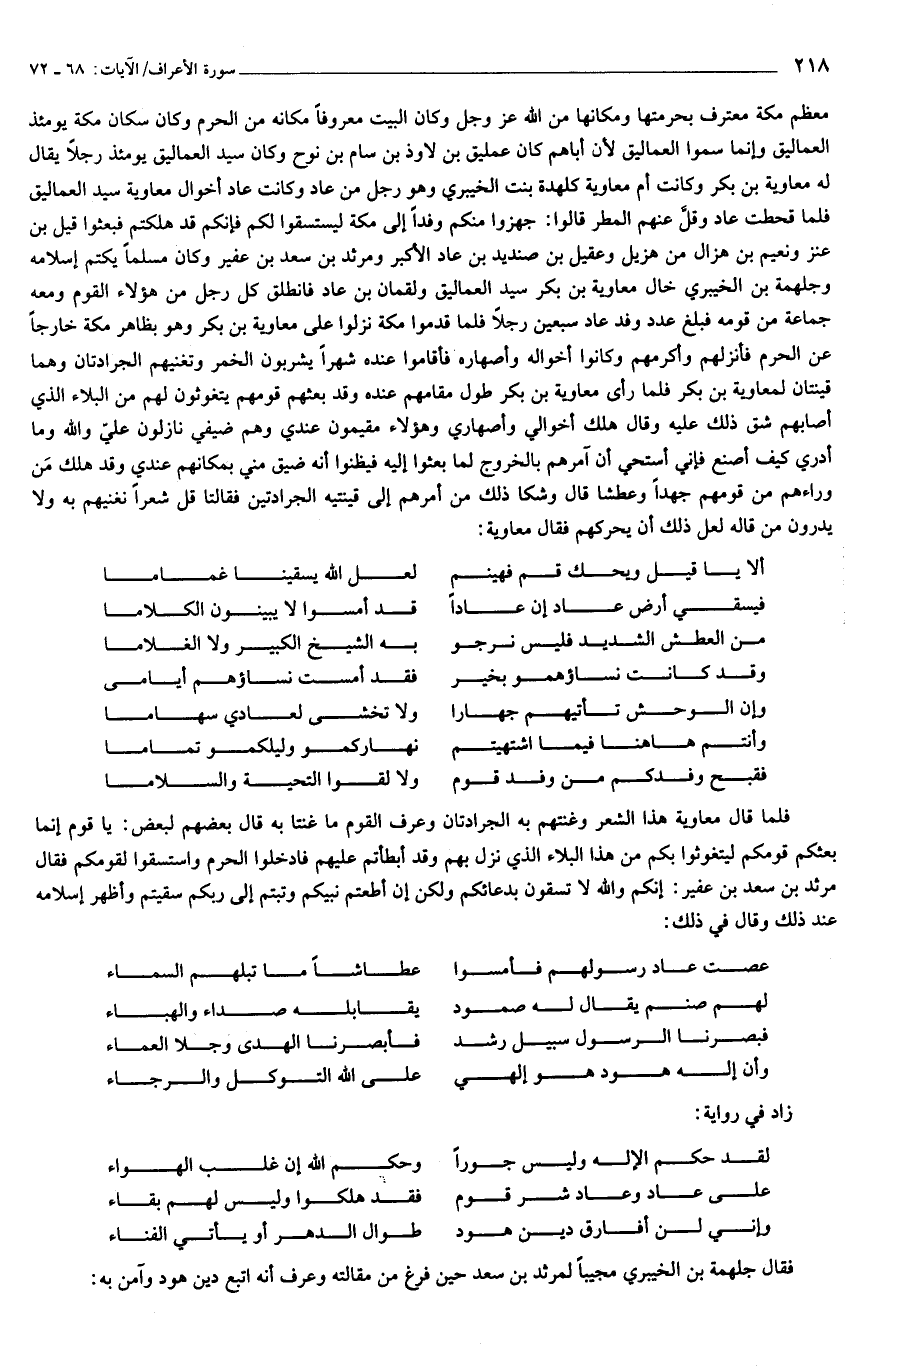 ٢١٨ سورة الأعراف/ الآيات: ٦٨ - ٧٢
معظم مكة معترف بحرمتها ومكانها من الله عز وجل وكان البيت معروفاً مكانه من الحرم وكان سكان مكة يومئذ
العماليق وإنما سموا العماليق لأن أباهم كان عمليق بن لاوذ بن سام بن نوح وكان سيد العماليق يومئذ رجلاً يقال
له معاوية بن بكر وكانت أم معاوية كلهدة بنت الخيبري وهو رجل من عاد وكانت عاد أخوال معاوية سيد العماليق
فلما قحطت عاد وقلَّ عنهم المطر قالوا: جهزوا منكم وفداً إلى مكة ليستسقوا لكم فإنكم قد هلكتم فبعثوا قيل بن
عنز ونعيم بن هزال من هزيل وعقيل بن صنديد بن عاد الأكبر ومرثد بن سعد بن عفير وكان مسلماً يكتم إسلامه
وجلهمة بن الخيبري خال معاوية بن بكر سيد العماليق ولقمان بن عاد فانطلق كل رجل من هؤلاء القوم ومعه
جماعة من قومه فبلغ عدد وفد عاد سبعين رجلاً فلما قدموا مكة نزلوا على معاوية بن بكر وهو بظاهر مكة خارجاً
عن الحرم فأنزلهم وأكرمهم وكانوا أخواله وأصهاره فأقاموا عنده شهراً يشربون الخمر وتغنيهم الجرادتان وهما
قينتان لمعاوية بن بكر فلما رأى معاوية بن بكر طول مقامهم عنده وقد بعثهم قومهم يتغوثون لهم من البلاء الذي
أصابهم شق ذلك عليه وقال هلك أخوالي وأصهاري وهؤلاء مقيمون عندي وهم ضيفي نازلون عليّ والله وما
أدري كيف أصنع فإني أستحي أن آمرهم بالخروج لما بعثوا إليه فيظنوا أنه ضيق مني بمكانهم عندي وقد هلك مَن
وراءهم من قومهم جهداً وعطشا قال وشكا ذلك من أمرهم إلى قينتيه الجرادتين فقالتا قل شعراً نغنيهم به ولا
يدرون من قاله لعل ذلك أن يحركهم فقال معاوية:
ألا يا قيل ويحك قم فهينم لعل الله يسقينا غماما
فيسقي أرض عاد إن عاداً قد أمسوا لا يبينون الكلاما
من العطش الشديد فليس نرجو به الشيخ الكبير ولا الغلاما
وقد كانت نساؤهمو بخير فقد أمست نساؤهم أيامى
وإن الوحش تأتيهم جهارا ولا تخشى لعادي سهاما
وأنتم هاهنا فيما اشتهيتم نهاركمو وليلكمو تماما
فقبح وفدكم من وفد قوم ولا لقوا التحية والسلاما
فلما قال معاوية هذا الشعر وغنتهم به الجرادتان وعرف القوم ما غنتا به قال بعضهم لبعض: يا قوم إنما
بعثكم قومكم ليتغوثوا بكم من هذا البلاء الذي نزل بهم وقد أبطأتم عليهم فادخلوا الحرم واستسقوا لقومكم فقال
مرثد بن سعد بن عفير: إنكم والله لا تسقون بدعائكم ولكن إن أطعتم نبيكم وتبتم إلى ربكم سقيتم وأظهر إسلامه
عند ذلك وقال في ذلك:
عصت عاد رسولهم فأمسوا عطاشاً ما تبلهم السماء
لهم صنم يقال له صمود يقابله صداء والهباء
فبصرنا الرسول سبيل رشد فأبصرنا الهدى وجلا العماء
وأن إله هود هو إلهي على الله التوكل والرجاء
زاد في رواية:
لقد حكم الإله وليس جوراً وحكم الله إن غلب الهواء
على عاد وعاد شر قوم فقد هلكوا وليس لهم بقاء
وإني لن أفارق دين هود طوال الدهر أو يأتي الفناء
فقال جلهمة بن الخيبري مجيباً لمرثد بن سعد حين فرغ من مقالته وعرف أنه اتبع دين هود وآمن به: